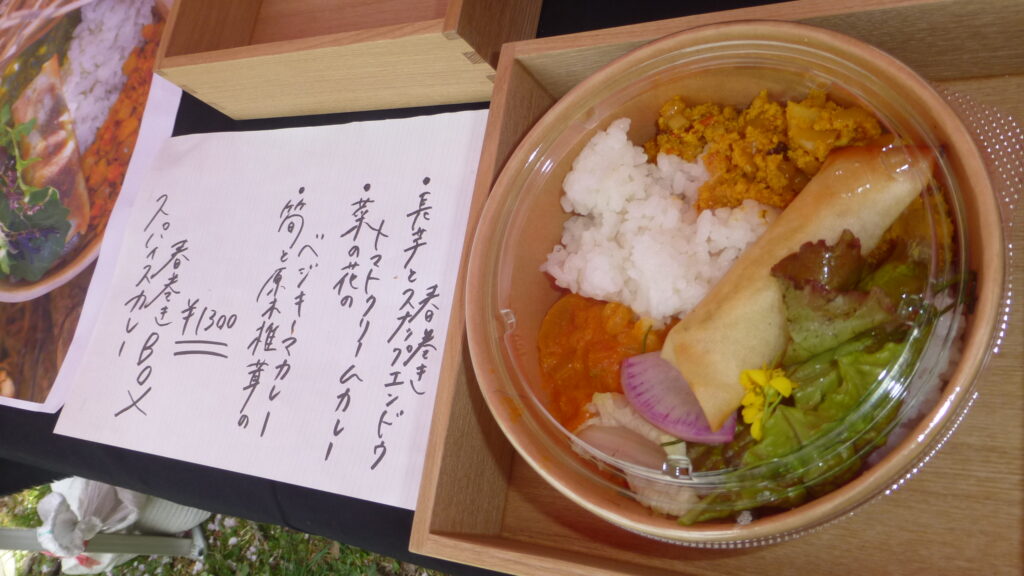 スパイスカレー
春巻きBOX
¥1300
・筍と原木椎茸の
ベジキーマカレー
・菜の花の
トマトクリームカレー
・長芋とスナップエンドウ
春巻き